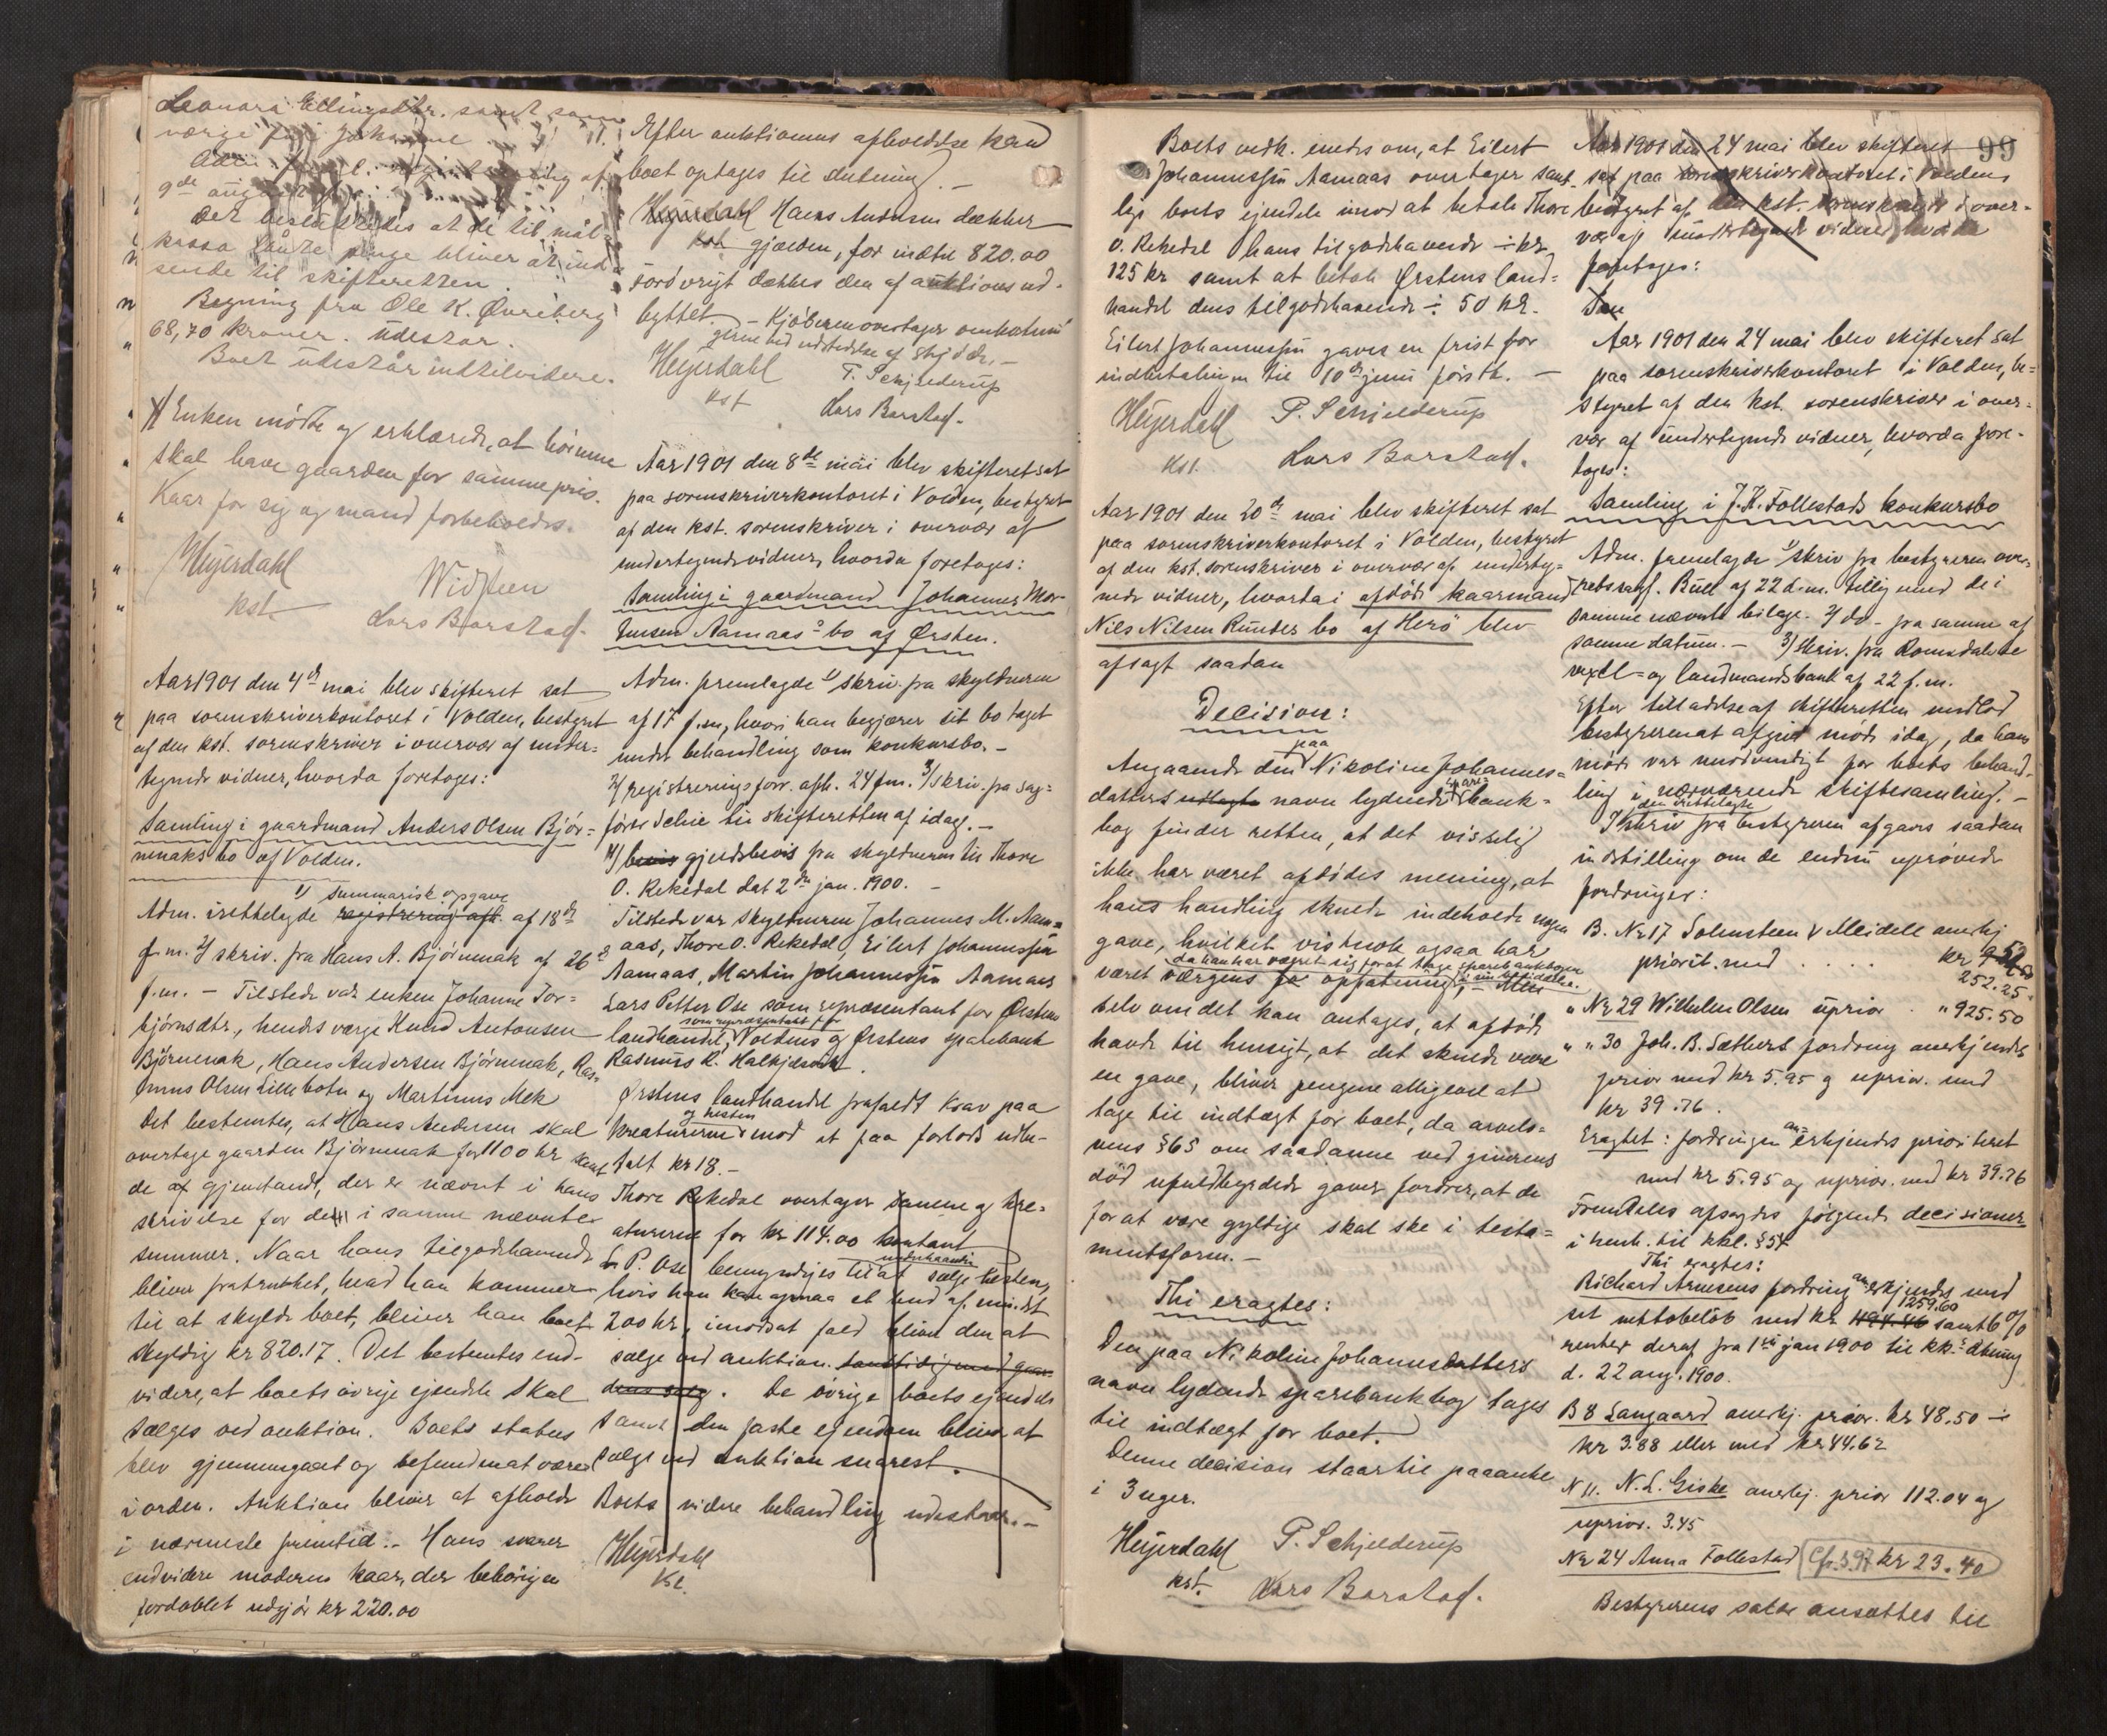 Leonora Ellingsdtr. samt som
værge for
9de aug
Det besluttedes at de til mål-
kassa sendte penge bliver at ind-
sende til skifteretten.
Regning fra Ole K. Øvreberg
68,70 kroner. Udestår.
Boet udestår indtilvidere.
Enken mødte og erklærede, at hørinne
skal have gaarden for samme pris.
Kaar for sig og mand forbeholdes.
Heyerdahl
kst.
Widsteen
Lars Barstad.
Aar 1901 den 4de mai blev skifteret sat
paa sorenskriverkontoret i Volden, bestyret
af den kst. sorenskriver i overvær af under-
tegnede vidner, hvorda foretoges:
Samling i gaardmand Anders Olsen Bjør-
nenaks bo af Volden.
1) summarisk opgave
Adm. irettelagde registrering afh. af 18de
f.m. 2) skriv. fra Hans A. Bjørnenak af 26de
f.m. – Tilstede var enken Johanne Tor-
bjørnsdtr., hendes værge Knud Antonsen
Bjørnenak, Hans Andersen Bjørnenak, Ras-
mus Olsen Lillebotn og Martinus Mek
Det bestemtes, at Hans Andersen skal
overtage gaarden Bjørnenak for 1100 kr samt
de af gjenstande, der er nævnt i hans
skrivelse for de i samme nævnte
summer. Naar hans tilgodehavende
bliver fratrukket, hvad han kommer
til at skylde boet, bliver han boet
skyldig kr 820.17. Det bestemtes end-
videre, at boets øvrige eiendele skal
sælges ved auktion. Boets status
blev gjennemgaaet og befundet at være
i orden. Auktion bliver at afholde
i nærmeste fremtid. – Hans svarer
endvidere moderens kaar, der behørigen
fordoblet udgjør kr 220.00
Efter auktionens afholdelse kan
boet optages til slutning. –
Heyerdahl Hans Andersen dækker
kst gjælden, for indtil 820.00
forøvrigt dækkes den af auktionsud-
byttet. – Kjøberen overtager omkostnin-
gerne ved udstedelse af skjøde. –
Heyerdahl
kst
P. Schjelderup
Lars Barstad.
Aar 1901 den 8de mai blev skifteret sat
paa sorenskriverkontoret i Volden, bestyret
af den kst. sorenskriver i overvær af
undertegnede vidner, hvorda foretoges:
Samling i gaardmand Johannes Mor-
tensen Aamaas's bo af Ørsten.
Adm. fremlagde 1) skriv. fra skyldneren
af 17 f.m., hvori han begjærer sit bo taget
under behandling som konkursbo. –
2) registreringsforr. afh. 24 f.m. 3) skriv. fra sag-
fører Schie til skifteretten af idag. –
4) bevis gjeldsbevis fra skyldneren til Thore
O. Rekedal dat 2den jan. 1900. –
Tilstede var skyldneren Johannes M. Aam-
aas, Thore O. Rekedal, Eilert Johannessøn
Aamaas, Martin Johannessøn Aamaas
Lars Petter Ose som repræsentant for Ørsten
som repræsentant for
landhandel, Voldens og Ørstens sparebank
Rasmus R. Halkjelsvik.
Ørstens landhandel frafaldt krav paa
og hesten
kreaturerne mod at faa forlods udbe-
talt kr 18. –
Thore Rekedal overtager samme og kre-
aturerne for kr 114.00 kontant
underhaanden
L. P. Ose bemyndiges til at sælge hesten,
hvis han kan opnaa et bud af mindst
200 kr, imodsat fald bliver den at
sælge ved auktion samtidig med gaar-
dens salg. De øvrige boets ejendele
samt den faste ejendom bliver at
sælge ved auktion snarest.
Boets videre behandling udestaar. –
Heyerdahl
kst.
Boets vedk. enedes om, at Eilert
Johannessøn Aamaas overtager samt-
lige boets ejendele imod at betale Thore
O. Rekedal hans tilgodehavende ÷ kr
125 kr samt at betale Ørstens land-
handel dens tilgodehavende ÷ 50 kr.
Eilert Johannessøn gaves en frist for
indbetalingen til 10de juni førstk. –
Heyerdahl
kst.
P. Schjelderup
Lars Barstad.
Aar 1901 den 20de mai blev skifteret sat
paa sorenskriverkontoret i Volden, bestyret
af den kst. sorenskriver i overvær af underteg-
nede vidner, hvorda i afdøde kaarmand
Nils Nilsen Rundes bo af Herø blev
afsagt saadan
Decision:
paa
Angaaende den Nikoline Johannes-
spare-
datters udlagte navn lydende bank-
bog finder retten, at det visselig
ikke har været afdødes mening, at
hans handling skulde indeholde nogen
gave, hvilket vistnok ogsaa har
da han har vægret sig for at tage sparebankbogen
i sin besiddelse.
været værgens opfatning, – Men
selv om det kan antages, at afdøde
havde til hensigt, at det skulde være
en gave, bliver pengene alligevel at
tage til indtægt for boet, da arvelo-
vens §65 om saadanne ved giverens
død ufuldbyrdede gaver fordrer, at de
for at være gyldige skal ske i testa-
mentsform. –
Thi eragtes:
Den paa Nikoline Johannesdatters
navn lydende sparebankbog tages
til indtægt for boet.
Denne decision staar til paaanke
i 3 uger.
Heyerdahl
kst.
P. Schjelderup
Lars Barstad.
99
Aar 1901 den 24 mai blev skifteret
sat paa sorenskriverkontoret i Voldens
bestyret af den kst. sorenskriver i over-
vær af undertegnede vidner hvorda
foretoges:
Aar 1901 den 24 mai blev skifteret sat
paa sorenskriverkontoret i Volden, be-
styret af den kst. sorenskriver i over-
vær af undertegnede vidner, hvorda fore-
toges:
Samling i J. K. Follestads konkursbo
Adm. fremlagde 1) skriv fra bestyreren over-
retssagf. Bull af 22 d.m. tillig med de i
samme nævnte bilage. 2) do – fra samme af
samme datum. – 3) skriv. fra Romsdalske
vexel- og landmandsbank af 22 f.m.
Efter tilladelse af skifteretten undlod
bestyreren at afgive møde idag, da hans
møde var unødvendigt for boets behand-
ling i nærværende skiftesamling. –
den irettelagte
I skriv fra bestyreren afgaves saadan
indstilling om de endnu uprøvede
fordringer:
B. No 17 Solensteen & Meidell anerkj
priorit. med . . . . . kr
252.25
" No 29 Wilhelm Olsen uprior . " 925.50
" " 30 Joh. B. Sætters fordring anerkjendes
prior med kr 5.95 og uprior. med
kr 39.76.
an-
Eragtet: fordringen erkjendes prioriteret
med kr 5.95 og uprior. med kr 39.76
Fremdeles afsagdes følgende decisioner
i henh. til kkl. §54
Thi eragtes:
an-
Richard Arnesens fordring erkjendes med
1259.60
sit nettobeløb med kr 494.46 samt 6%
renter deraf fra 1ste jan 1900 til kk.s åbning
d. 22 aug. 1900.
B 8 Langaard anerkj. prior. kr 48.50 ÷
kr 3.88 eller med kr 44.62
N 11. N. L. Giske anerkj. prior 112.04 og
uprior. 3.45
No 24 Anna Follestad Cfr. S 97 kr 23.40
Bestyrerens salær ansættes til